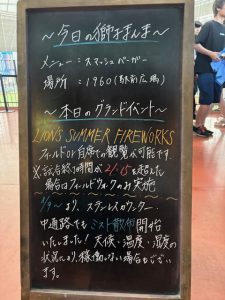 〜今日の獅子まんま〜
メニュー：スマッシュバーガー
場所：1960（駅前広場）
〜本日のグランドイベント〜
LION'S SUMMER FIREWORKS
フィールドor自席での観覧が可能です
※試合終了時間が21:15を超えた
場合はフィールドウォークのみ実施
7/9〜より、ステンレスカウンター
中通路でもミスト散布開始
いたしました！天候・温度・湿度の
状況により、稼働しない場合もござい
ます。